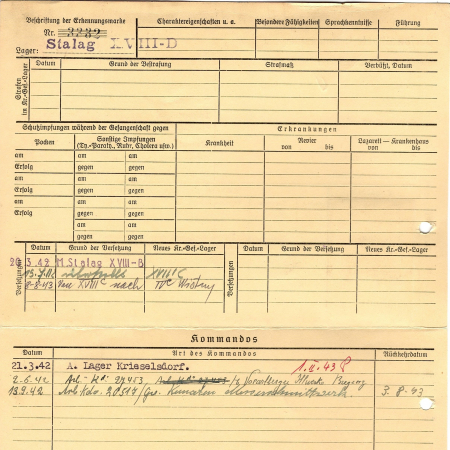 Beschriftung der Erkennungsmarke
Nr. 3232
Lager: Stalag XVIII-D
Charaktereigenschaften u. a.
Besondere Fähigkeiten
Sprachkenntnisse
Führung
Strafen im Kr.-Gef.-Lager
Datum
Grund der Bestrafung
Strafmaß
Verbüßt, Datum
Schutzimpfungen während der Gefangenschaft gegen
Erkrankungen
Pocken
Sonstige Impfungen
(Ty.-Paraty., Ruhr, Cholera usw.)
Krankheit
Revier
von bis
Lazarett — Krankenhaus
von bis
am am am
Erfolg gegen gegen
am am am
Erfolg gegen gegen
am am am
Erfolg gegen gegen
am am
gegen gegen
Versetzungen
Datum Grund der Versetzung Neues Kr.-Gef.-Lager
20.3.42 M.Stalag XVIII-B
XVIII C
8-8-43 Von XVIII C nach IV C
Versetzungen
Datum Grund der Versetzung Neues Kr.-Gef.-Lager
Kommandos
Datum
Art des Kommandos
Rückkehrdatum
21.3.42 A. Lager Krieselsdorf. 1.II.43
2.6.42 27453
13.9.42 Arb. Kdo. 20517/Gw. 3-8-43